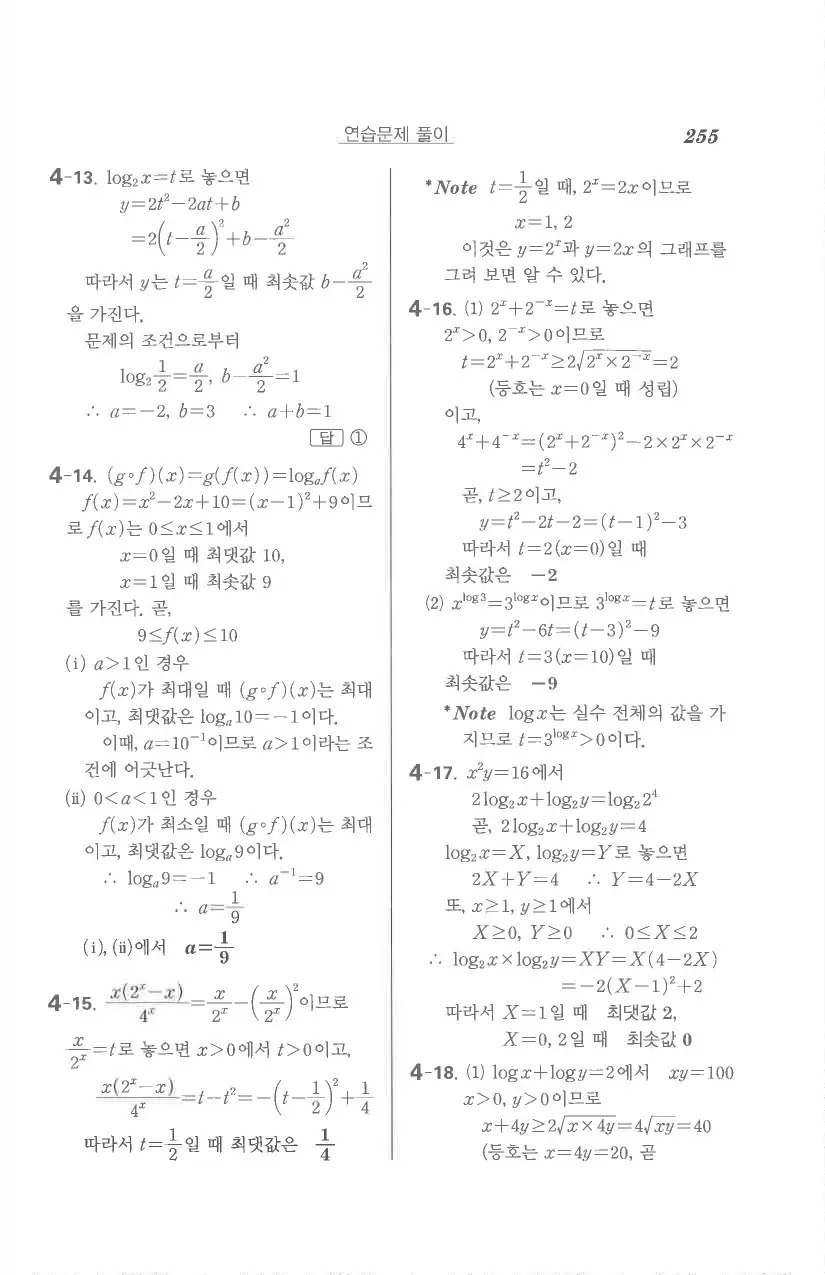 연습문제 풀이 255
4-13. log₂x=t로 놓으면
y=2t²-2at+b
=2(t-a/2)²+b-a²/2
따라서 y는 t=a/2일 때 최솟값 b-a²/2
을 가진다.
문제의 조건으로부터
log₂ 1/2=a/2, b-a²/2=1
∴ a=-2, b=3 ∴ a+b=1
답 ①
4-14. (g∘f)(x)=g(f(x))=logₐf(x)
f(x)=x²-2x+10=(x-1)²+9이므
로 f(x)는 0≤x≤1에서
x=0일 때 최댓값 10,
x=1일 때 최솟값 9
를 가진다. 곧,
9≤f(x)≤10
(i) a>1인 경우
f(x)가 최대일 때 (g∘f)(x)는 최대
이고, 최댓값은 logₐ10=-1이다.
이때, a=10⁻¹이므로 a>1이라는 조
건에 어긋난다.
(ii) 0<a<1인 경우
f(x)가 최소일 때 (g∘f)(x)는 최대
이고, 최댓값은 logₐ9이다.
∴ logₐ9=-1 ∴ a⁻¹=9
∴ a=1/9
(i), (ii)에서 a=1/9
4-15. x(2ˣ-x)/4ˣ=x/2ˣ-(x/2ˣ)²이므로
x/2ˣ=t로 놓으면 x>0에서 t>0이고,
x(2ˣ-x)/4ˣ=t-t²=-(t-1/2)²+1/4
따라서 t=1/2일 때 최댓값은 1/4
*Note t=1/2일 때, 2ˣ=2x이므로
x=1, 2
이것은 y=2ˣ과 y=2x의 그래프를
그려 보면 알 수 있다.
4-16. (1) 2ˣ+2⁻ˣ=t로 놓으면
2ˣ>0, 2⁻ˣ>0이므로
t=2ˣ+2⁻ˣ≥2√(2ˣ×2⁻ˣ)=2
(등호는 x=0일 때 성립)
이고,
4ˣ+4⁻ˣ=(2ˣ+2⁻ˣ)²-2×2ˣ×2⁻ˣ
=t²-2
곧, t≥2이고,
y=t²-2t-2=(t-1)²-3
따라서 t=2(x=0)일 때
최솟값은 -2
(2) x^(log3)=3^(logx)이므로 3^(logx)=t로 놓으면
y=t²-6t=(t-3)²-9
따라서 t=3(x=10)일 때
최솟값은 -9
*Note logx는 실수 전체의 값을 가
지므로 t=3^(logx)>0이다.
4-17. x²y=16에서
2log₂x+log₂y=log₂2⁴
곧, 2log₂x+log₂y=4
log₂x=X, log₂y=Y로 놓으면
2X+Y=4 ∴ Y=4-2X
또, x≥1, y≥1에서
X≥0, Y≥0 ∴ 0≤X≤2
∴ log₂x×log₂y=XY=X(4-2X)
=-2(X-1)²+2
따라서 X=1일 때 최댓값 2,
X=0, 2일 때 최솟값 0
4-18. (1) logx+logy=2에서 xy=100
x>0, y>0이므로
x+4y≥2√(x×4y)=4√(xy)=40
(등호는 x=4y=20, 곧